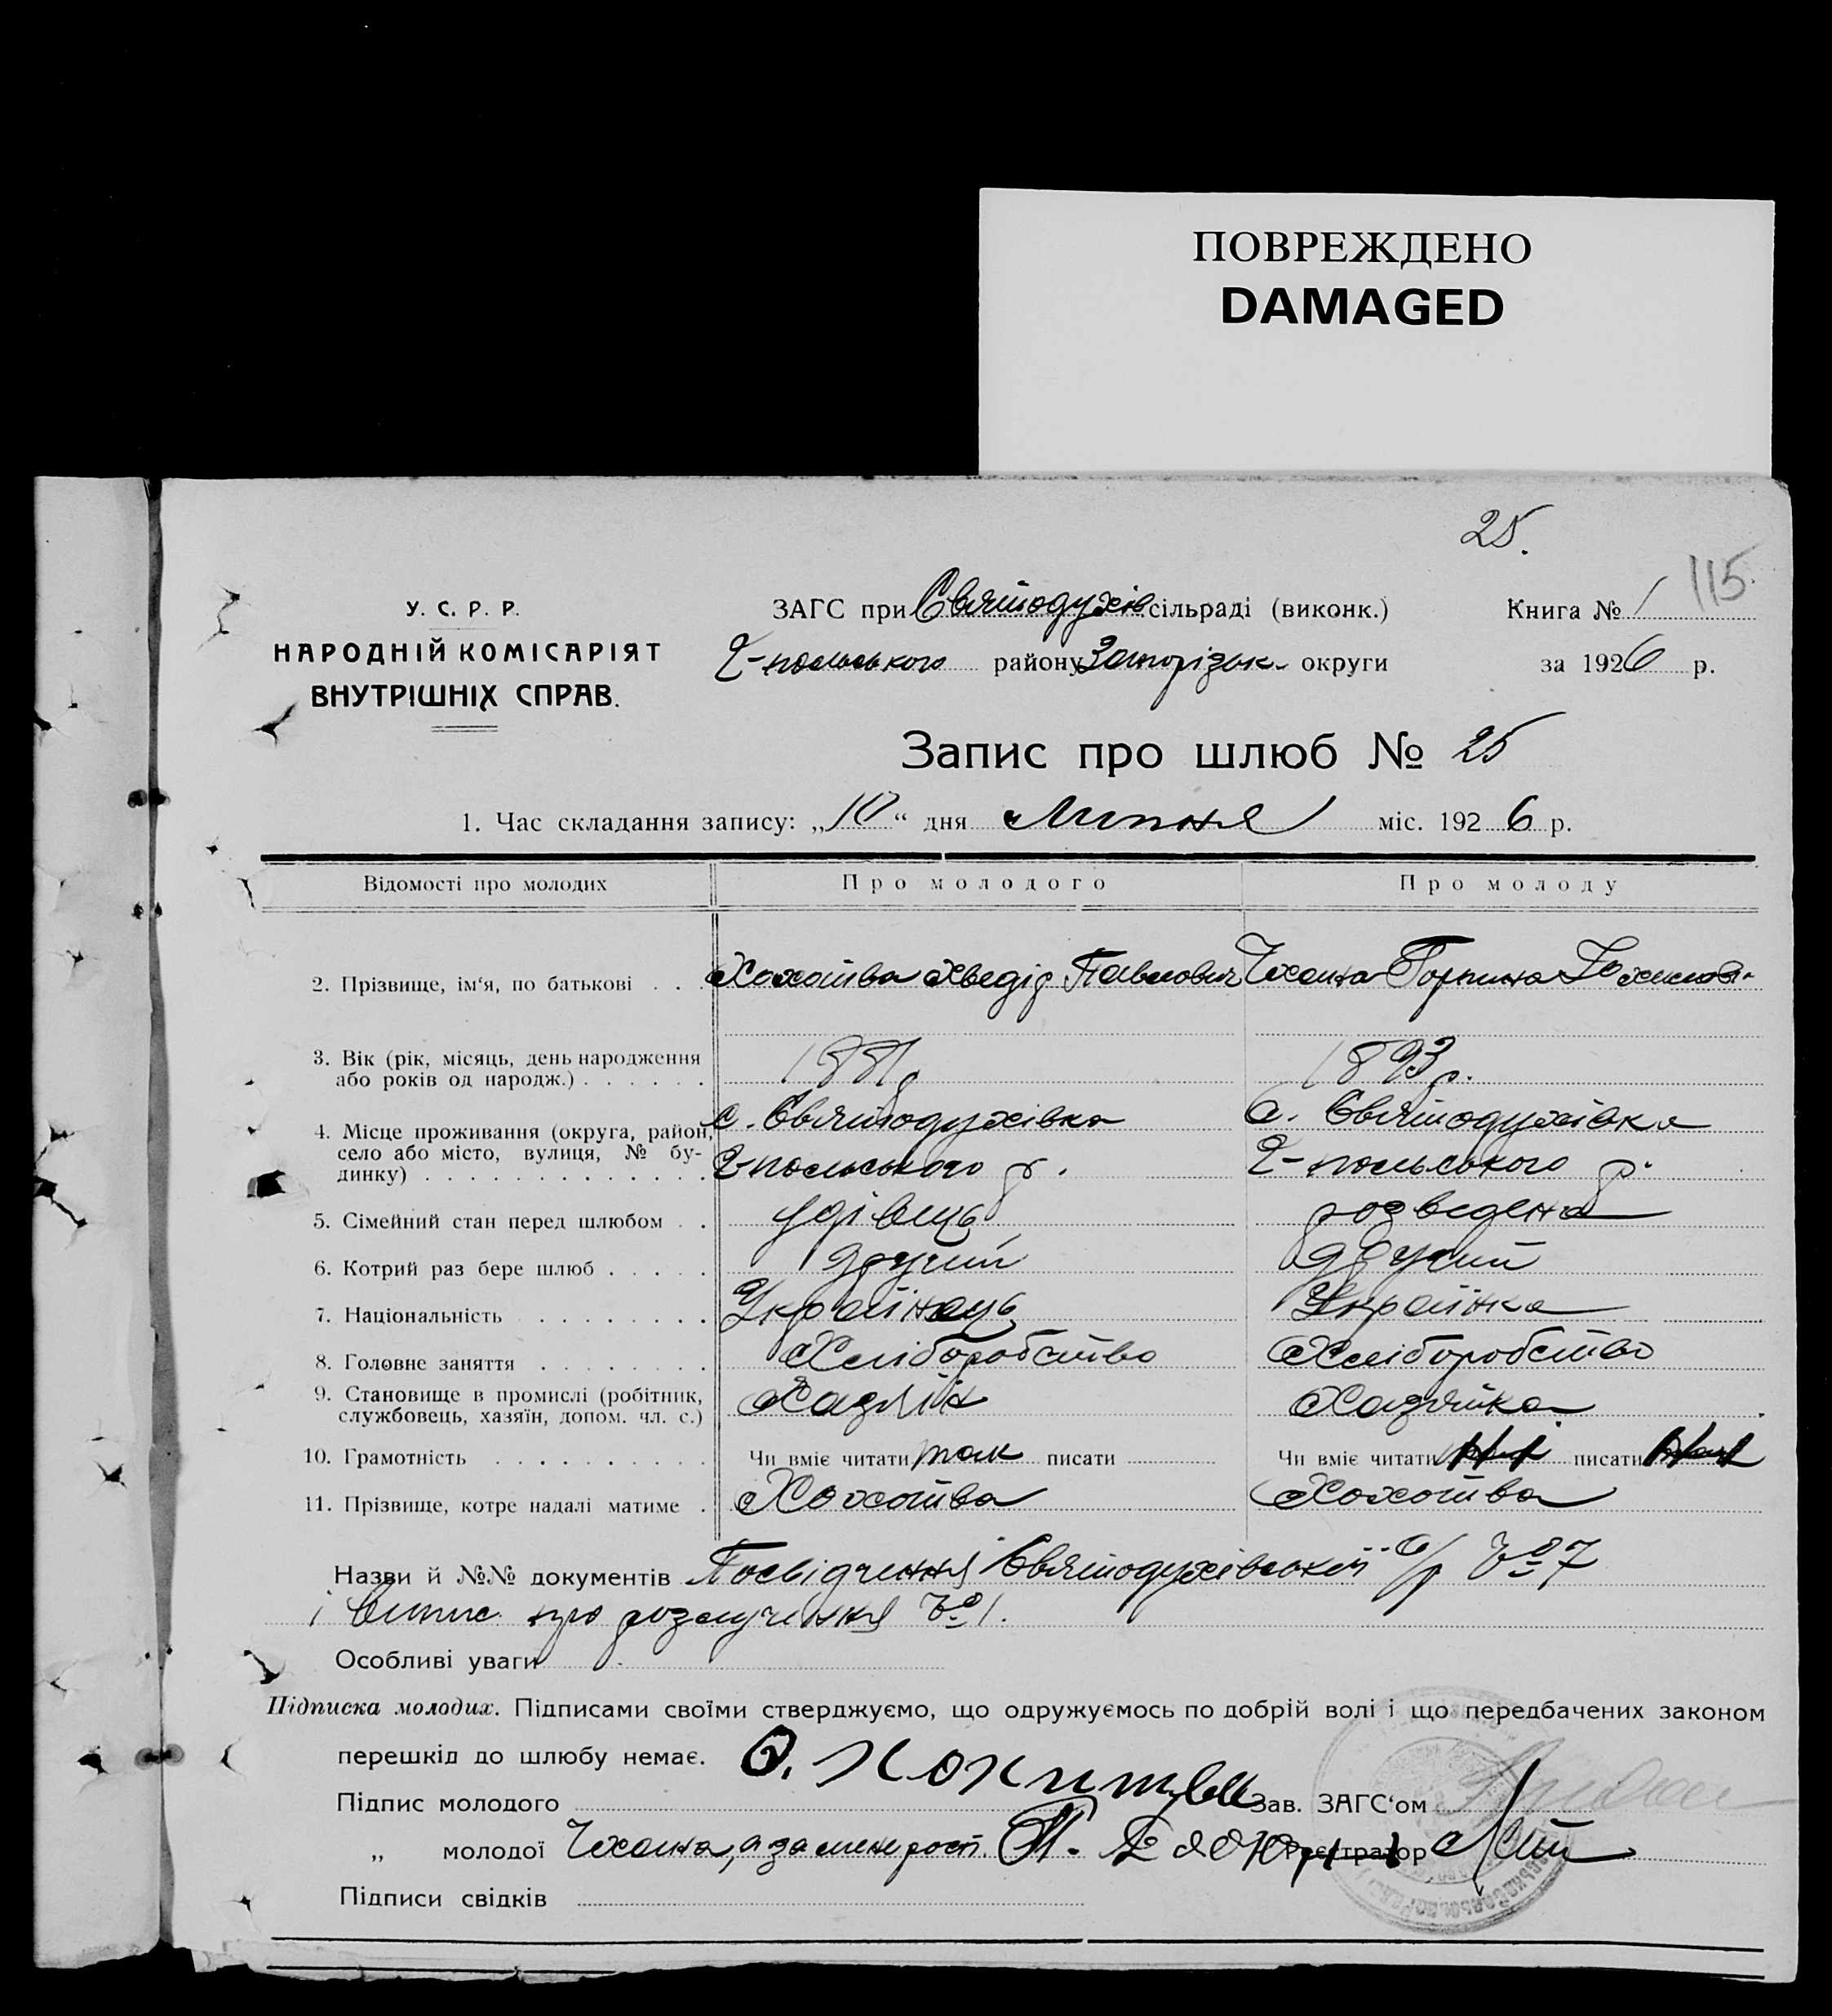 ПОВРЕЖДЕНО
DAMAGED
25.
115
У. С. Р. Р.
НАРОДНІЙ КОМІСАРІЯТ
ВНУТРІШНІХ СПРАВ.
ЗАГС при Святодухів сільраді (виконк.)
Книга № 1
польського району Запорізьк. округи
за 1926 р.
Запис про шлюб № 25
1. Час складання запису: „10“ дня Липня міс. 1926 р.
Відомості про молодих
Про молодого
Про молоду
2. Прізвище, ім‘я, по батькові . .
Хохотва Хведір Павлович
Горпина
3. Вік (рік, місяць, день народження
або років од народж.) . . . . . .
1881 р
1893 р.
4. Місце проживання (округа, район,
село або місто, вулиця, № бу-
динку) . . . . . . . . . . . . .
с. Святодухівка
польського р.
с. Святодухівка
польського р.
5. Сімейний стан перед шлюбом . .
удівець
розведена
6. Котрий раз бере шлюб . . . . .
другий
другий
7. Національність . . . . . . . .
Українець
Українка
8. Головне заняття . . . . . . . .
Хліборобство
Хліборобство
9. Становище в промислі (робітник,
службовець, хазяїн, допом. чл. с.)
Хазяїн
Хазяйка
10. Грамотність . . . . . . . . . .
Чи вміє читати так писати
Чи вміє читати писати
11. Прізвище, котре надалі матиме .
Хохотва
Хохотва
Назви й №№ документів Посвідчення Святодухівської с/р № 7
і Витис про розлучення № 1.
Особливі уваги
Підписка молодих. Підписами своїми стверджуємо, що одружуємось по добрій волі і що передбачених законом
перешкід до шлюбу немає.
Підпис молодого
Зав. ЗАГС‘ом
„ молодої
Реєстратор
Підписи свідків